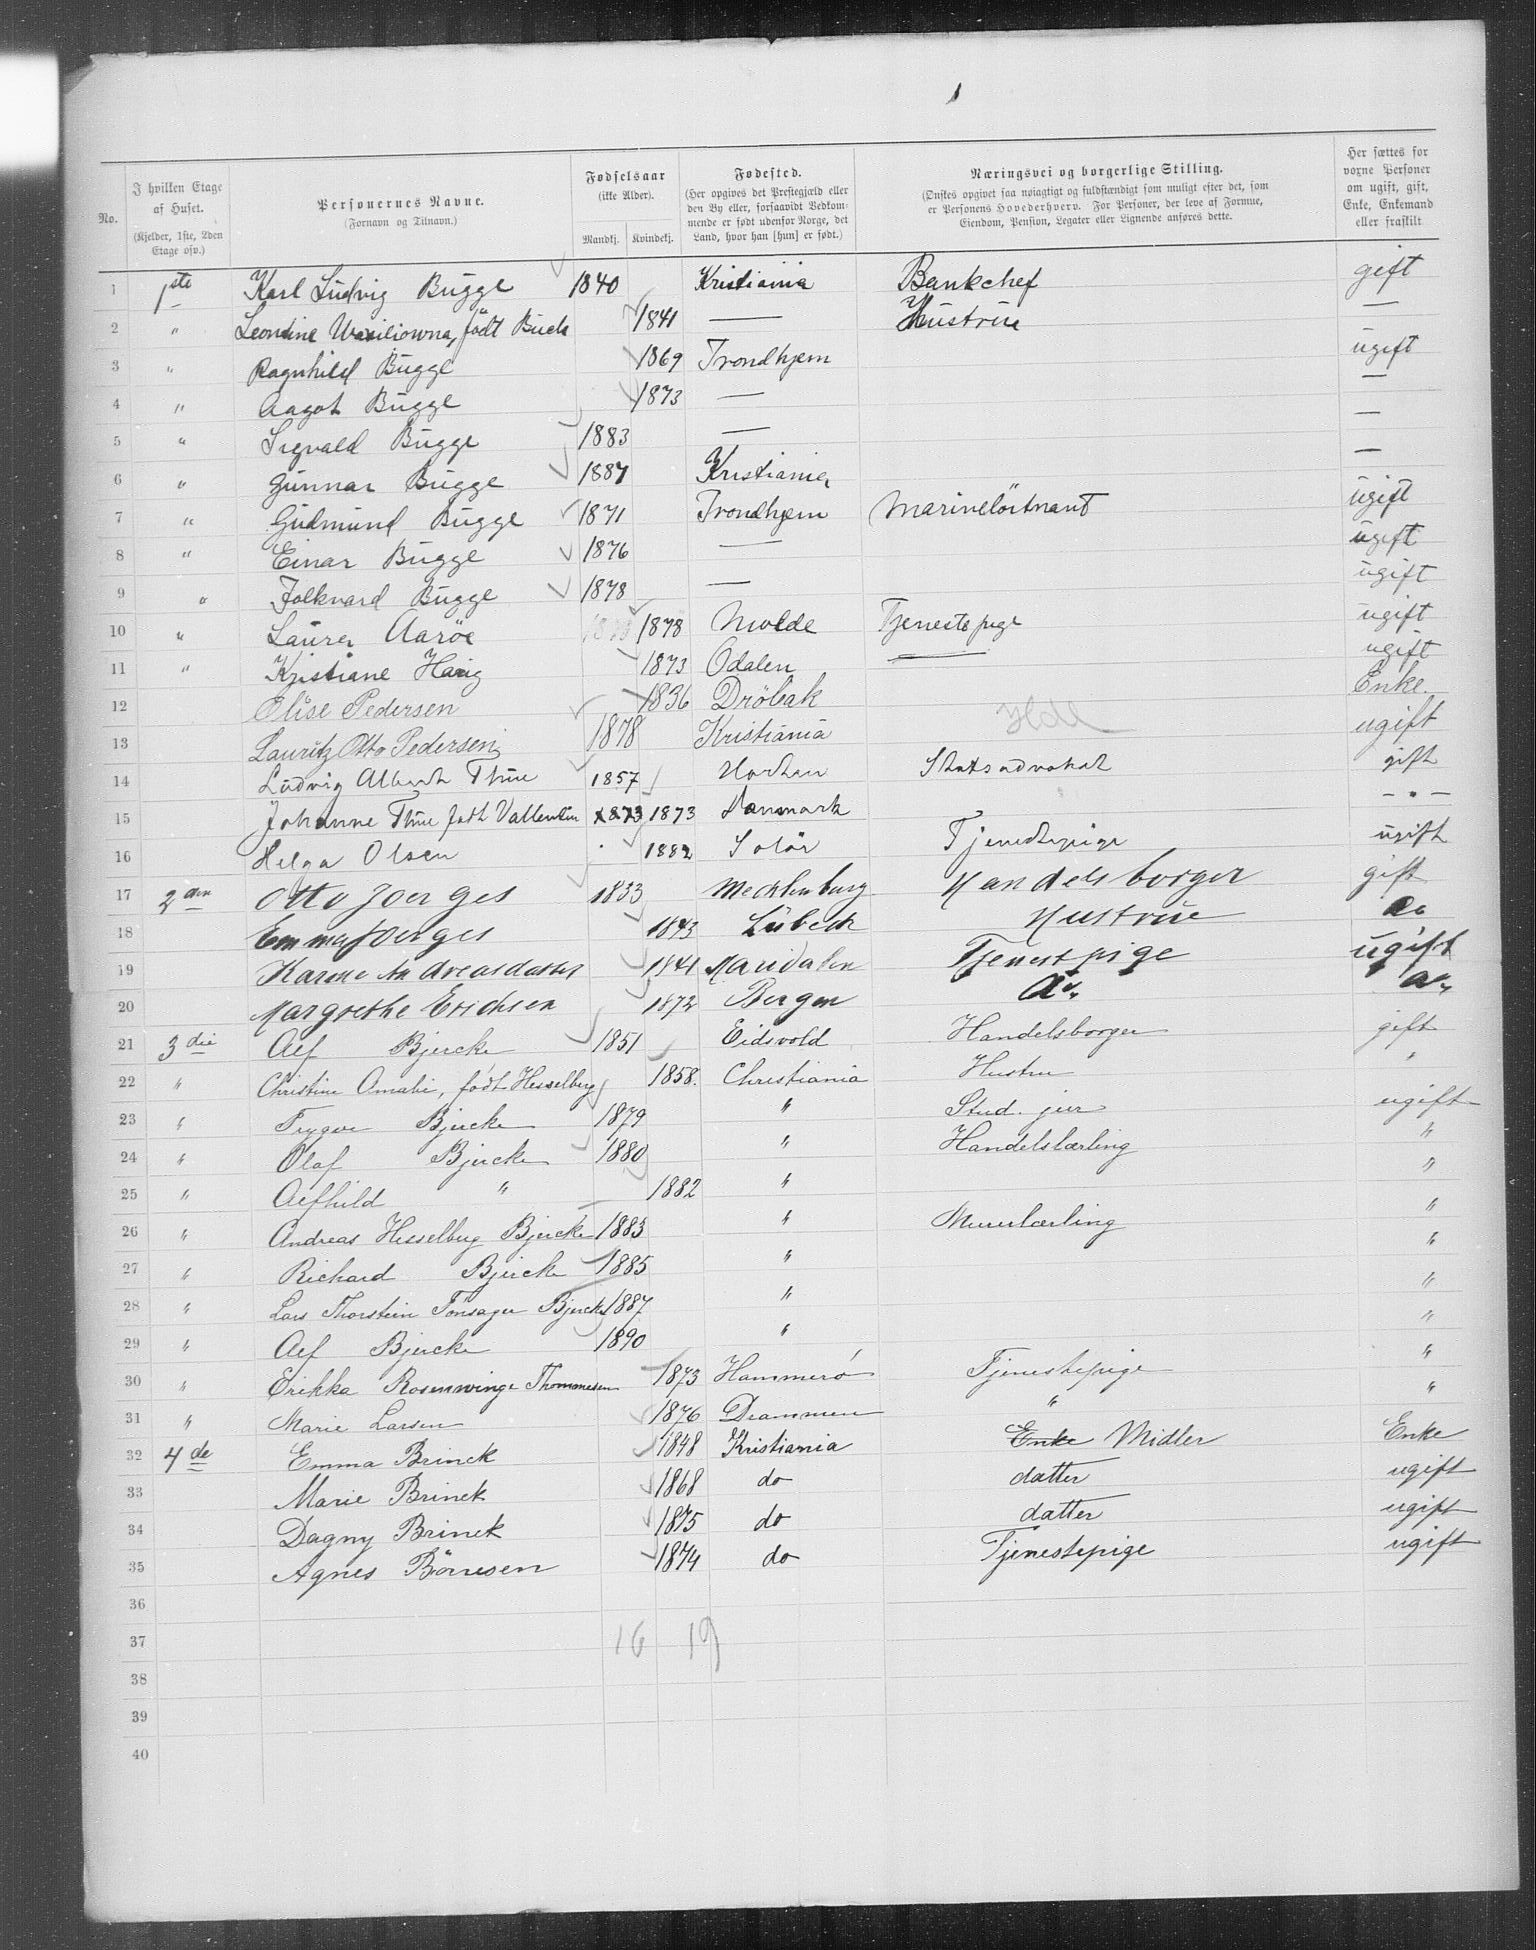 1
No.
I hvilken Etage af Huset.
(Kjelder, 1ste, 2den Etage osv.)
Personernes Navne.
(Fornavn og Tilnavn.)
Fødselsaar
(ikke Alder).
Mandkj. Kvindekj.
Fødested.
(Her opgives det Prestegjæld eller den By eller, forsaavidt Vedkommende er født udenfor Norge, det Land, hvor han [hun] er født.)
Næringsvei og borgerlige Stilling.
(Ønskes opgivet saa nøiagtigt og fuldstændigt som muligt efter det, som er Personens Hovederhverv. For Personer, der leve af Formue, Eiendom, Pension, Legater eller Lignende anføres dette.
Her sættes for voxne Personer om ugift, gift, Enke, Enkemand eller fraskilt
1 1ste Karl Ludvig Bugge 1840 Kristiania Bankchef gift
2 " Leontine Wasiliowna, født Buck 1841 — Hustrue —
3 " Ragnhild Bugge 1869 Trondhjem ugift
4 " Aagot Bugge 1873 — —
5 " Sigvald Bugge 1883 — —
6 " Gunnar Bugge 1887 Kristiania —
7 " Gudmund Bugge 1871 Trondhjem Marineløitnant ugift
8 " Einar Bugge 1876 — ugift
9 " Folkvard Bugge 1878 — ugift
10 " Laura Aarøe 1878 Molde Tjenestepige ugift
11 " Kristiane Haug 1873 Odalen — ugift
12 Elise Pedersen 1836 Drøbak Enke.
13 Lauritz Otto Pedersen 1878 Kristiania ugift
14 Ludvig Albert Thue 1857 Horten Statsadvokat gift
15 Johanne Thue født Vallentin 1873 1873 Danmark - " -
16 Helga Olsen 1882 Solør Tjenestepige ugift
17 2den Otto Joerges 1833 Mecklenburg Handelsborger gift
18 Emma Joerges 1843 Lübeck Hustrue do
19 Karen Andreasdatter 1841 Maridalen Tjenestpige ugift
20 Margrethe Erichsen 1872 Bergen do do
21 3die Alf Bjercke 1851 Eidsvold Handelsborger gift
22 " Christine Amalie, født Hesselberg 1858. Christiania Hustru "
23 " Trygve Bjercke 1879 " Stud. jur ugift
24 " Olaf Bjercke 1880 " Handelslærling "
25 " Alfhild " 1882 " "
26 " Andreas Hesselberg Bjercke 1883 " Murerlærling "
27 " Richard Bjercke 1885 " "
28 " Lars Thorstein Tonsager Bjercke 1887 " "
29 " Alf Bjercke 1890 " "
30 " Erikka Rosenvinge Thommesen 1873 Hammerø Tjenestepige "
31 " Marie Larsen 1876 Drammen " "
32 4de Emma Brinck 1848 Kristiania Enke Midler Enke
33 Marie Brinck 1868 do datter ugift
34 Dagny Brinck 1875 do datter ugift
35 Agnes Børresen 1874 do Tjenestepige ugift
36
37 16 19
38
39
40